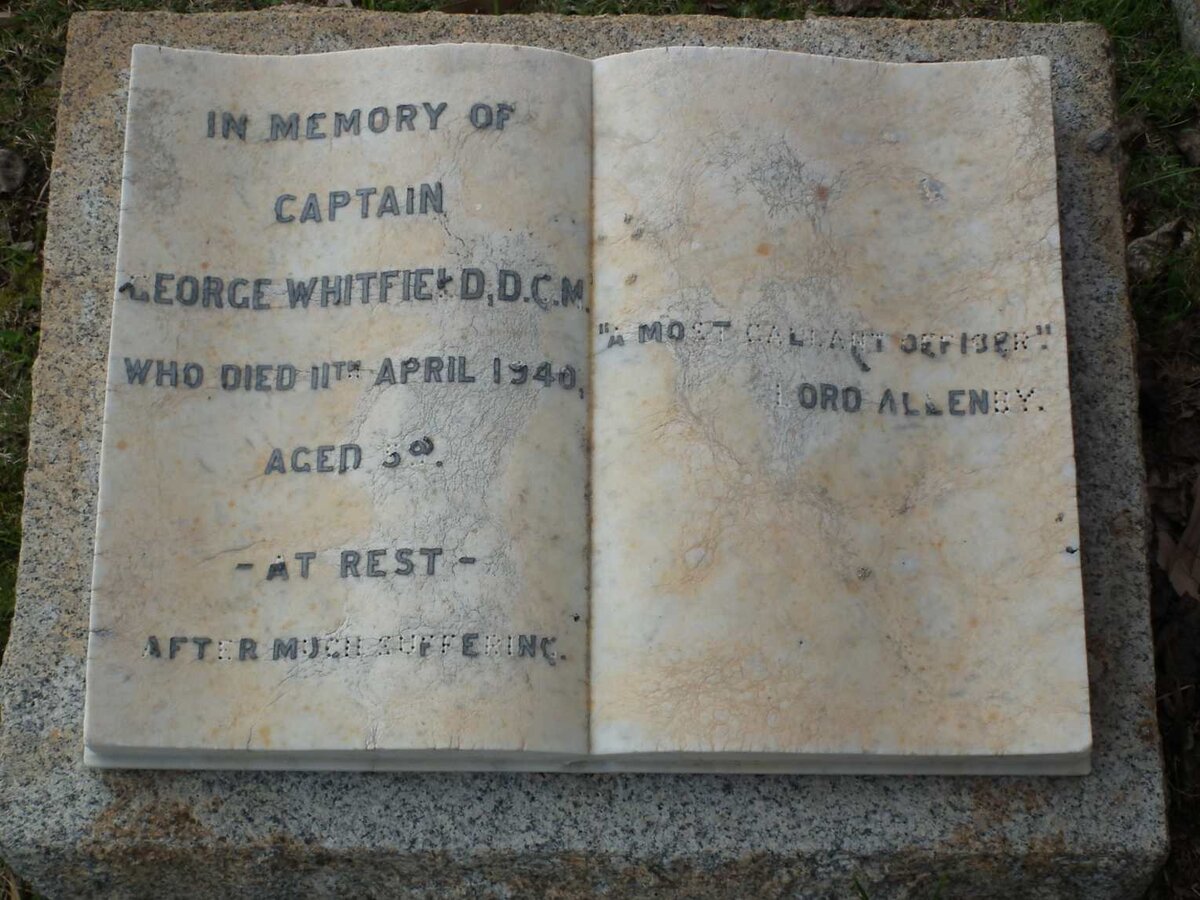 IN MEMORY OF
CAPTAIN
GEORGE WHITFIELD, D.C.M.
WHO DIED 11TH APRIL 1940,
AGED
- AT REST -
AFTER MUCH SUFFERING.
"A MOST GALLANT OFFICER".
LORD ALLENBY.